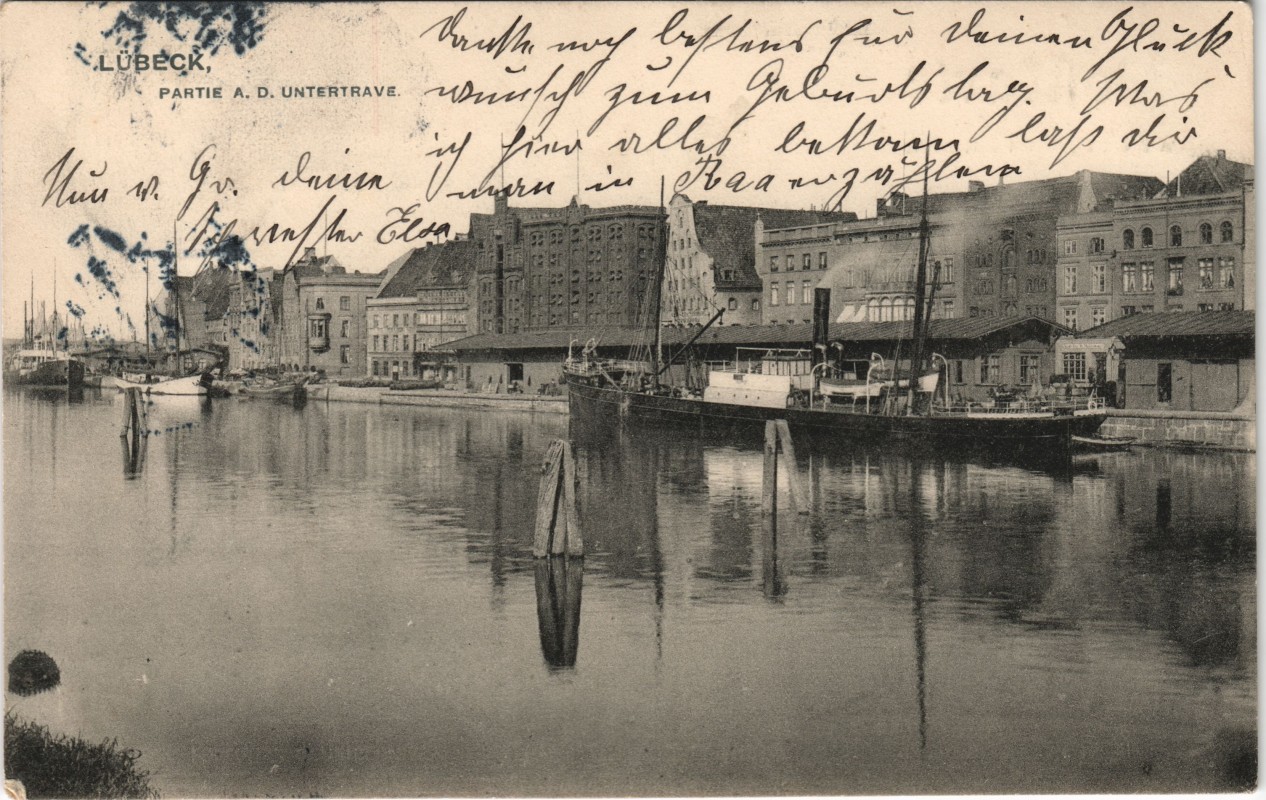 LÜBECK,
PARTIE A. D. UNTERTRAVE.
Danke noch bestens für deinen Glück
wünsch zum Geburtstag. Was
ich hier alles bekam laß dir
man in erzählen
Nun v. Gr. deine
Schwester Elsa